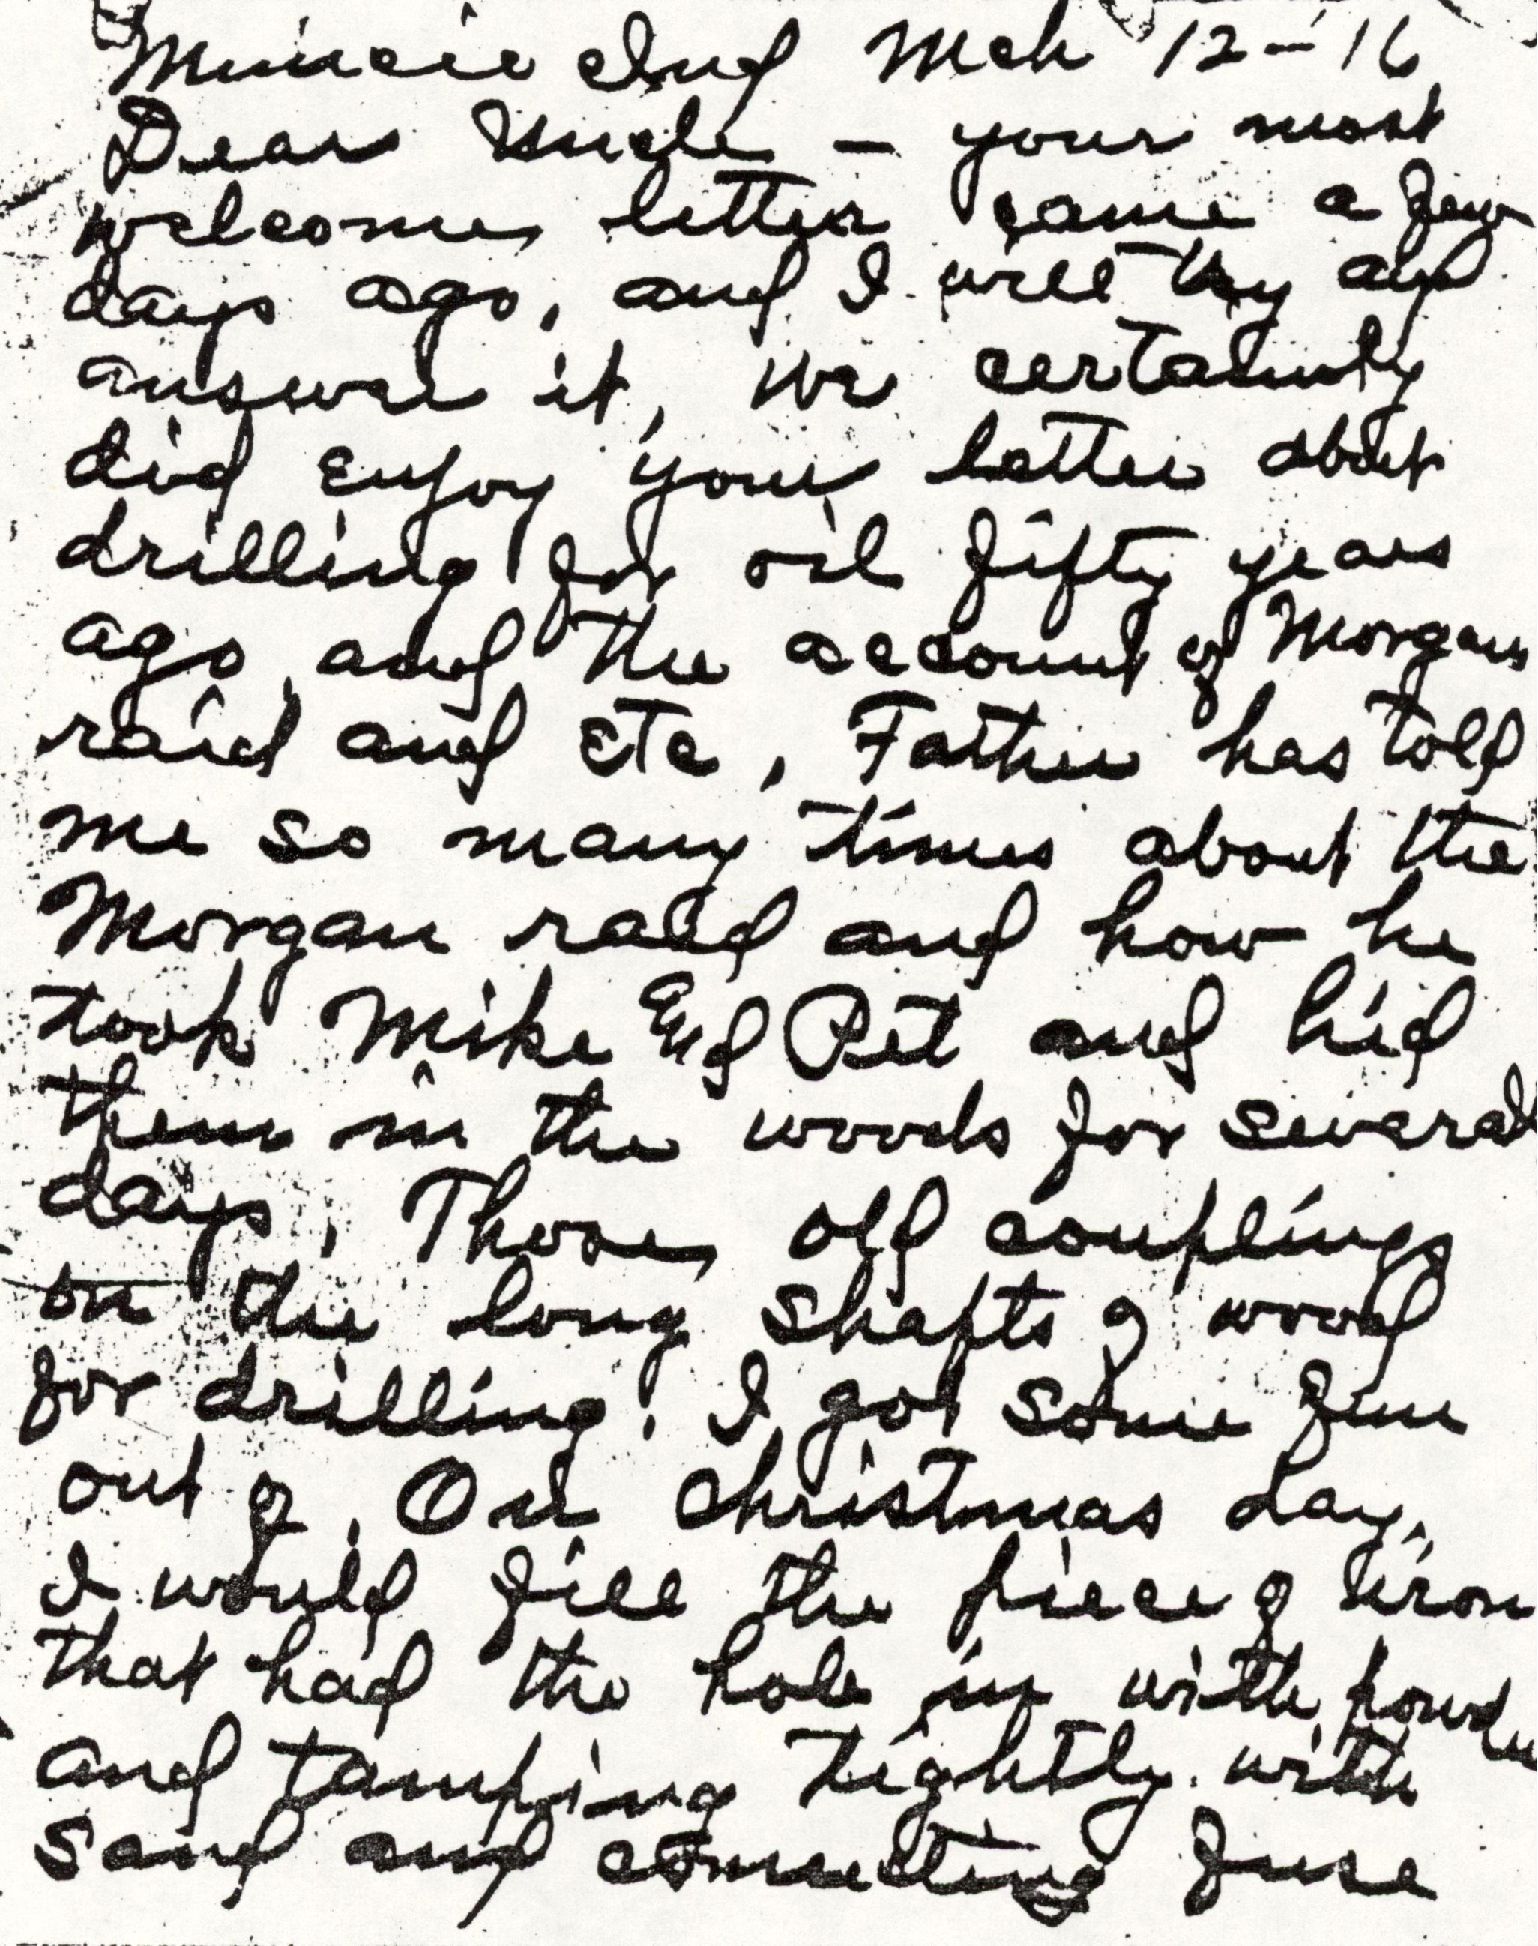 Muncie Ind Mch 12-16
Dear Uncle – your most
welcome letter came a few
days ago, and I will try and
answer it, we certainly
did enjoy your letter about
drilling for oil fifty years
ago, and the account of Morgans
raid and etc, Father has told
me so many times about the
Morgan raid and how he
took Mike and Pet and hid
them in the woods for several
days, Those old couplings
on the long shafts of wood
for drilling, I got some fun
out of, On Christmas day,
I would fill the piece of iron
that had the hole in with powder
and tamping tightly with
sand and connecting fuse